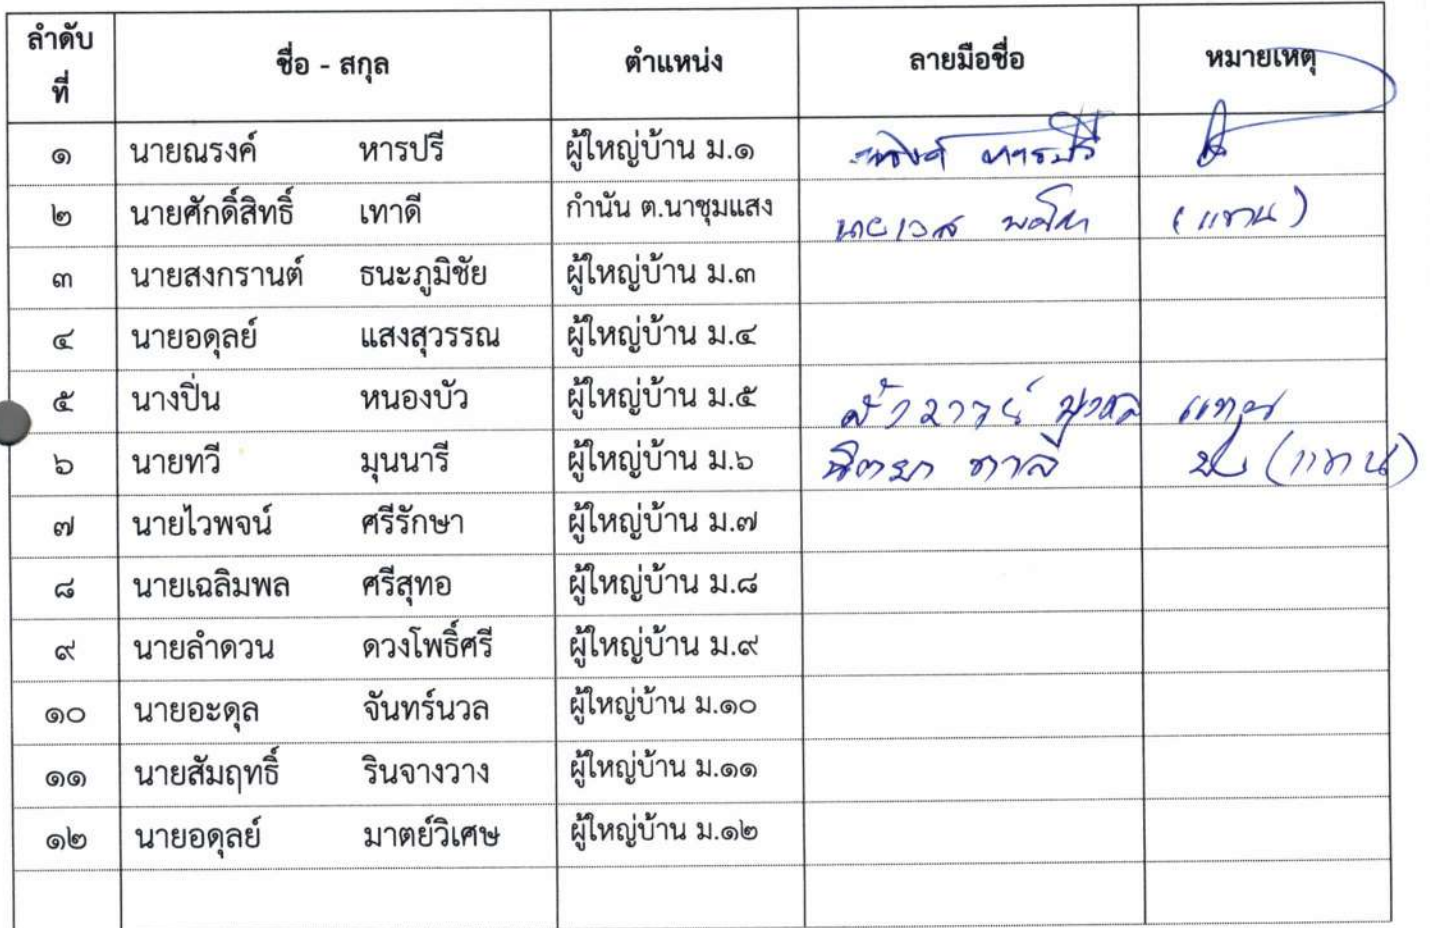 ลำดับที่ ชื่อ - สกุล ตำแหน่ง ลายมือชื่อ หมายเหตุ
๑ นายณรงค์ หารปรี ผู้ใหญ่บ้าน ม.๑ ณรงค์ หารปรี
๒ นายศักดิ์สิทธิ์ เทาดี กำนัน ต.นาชุมแสง (แทน)
๓ นายสงกรานต์ ธนะภูมิชัย ผู้ใหญ่บ้าน ม.๓
๔ นายอดุลย์ แสงสุวรรณ ผู้ใหญ่บ้าน ม.๔
๕ นางปิ่น หนองบัว ผู้ใหญ่บ้าน ม.๕ แทน
๖ นายทวี มุนนารี ผู้ใหญ่บ้าน ม.๖ (แทน)
๗ นายไวพจน์ ศรีรักษา ผู้ใหญ่บ้าน ม.๗
๘ นายเฉลิมพล ศรีสุทอ ผู้ใหญ่บ้าน ม.๘
๙ นายลำดวน ดวงโพธิ์ศรี ผู้ใหญ่บ้าน ม.๙
๑๐ นายอะดุล จันทร์นวล ผู้ใหญ่บ้าน ม.๑๐
๑๑ นายสัมฤทธิ์ รินจางวาง ผู้ใหญ่บ้าน ม.๑๑
๑๒ นายอดุลย์ มาตย์วิเศษ ผู้ใหญ่บ้าน ม.๑๒